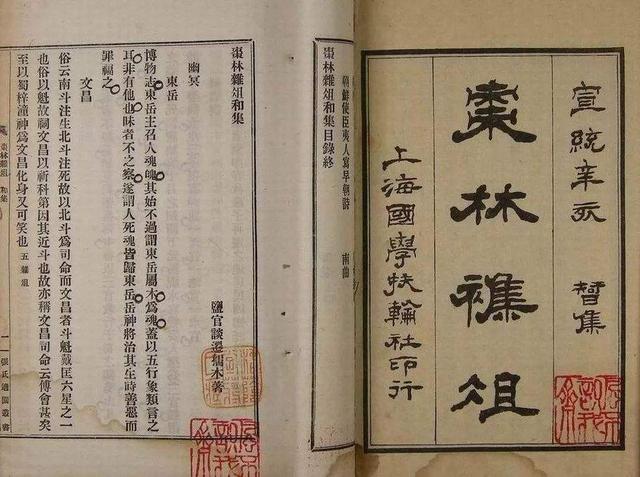 宣統辛亥 智集
棗林襍俎
上海國學扶輪社印行
朝鮮使臣夷人寫早朝詩 南曲
棗林雜俎和集目錄終
棗林雜俎和集
鹽官談遷孺木著
幽冥
東岳
博物志東岳主召人魂魄其始不過謂東岳屬木爲魂蓋以五行象類言之
耳非有他也昧者不之察遂謂人死魂皆歸東岳岳神將治其生時善惡而
罪福之
文昌
俗云南斗注生北斗注死故以北斗爲司命而文昌者斗魁戴匡六星之一
也俗以魁故祠文昌以祈科第因其近斗也故亦稱文昌司命云傅會甚矣
至以蜀梓潼神爲文昌化身又可笑也 五雜俎
棗林雜俎 和集 一 張氏適園叢書